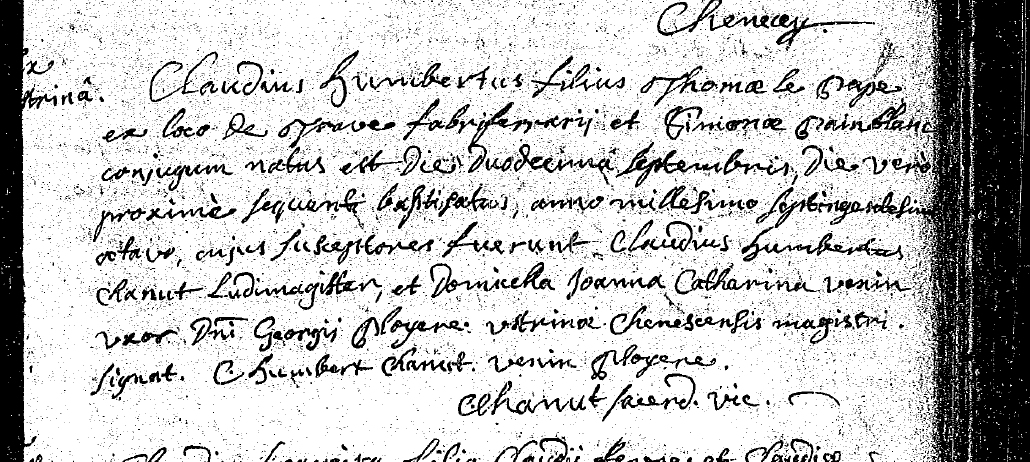 Chenecey.
trinâ. Claudius humbertus filius Thomæ le Pape
ex loco de Trave fabriferrarij et Simonæ Painblanc
conjugum natus est Die Duodecima Septembris, Die vero
proximè sequenti baptisatus, anno millesimo septingentesimo
octavo, cujus susceptores fuerunt Claudius humbertus
chanut Ludimagister, et Domicella Joanna Catharina venin
uxor Dni Georgij Ployere ustrinæ Chenecensis magistri.
signat. C humbert chanut. venin Ployere.
Chanut sacerd. vic.
filia Claudii et Claudiæ